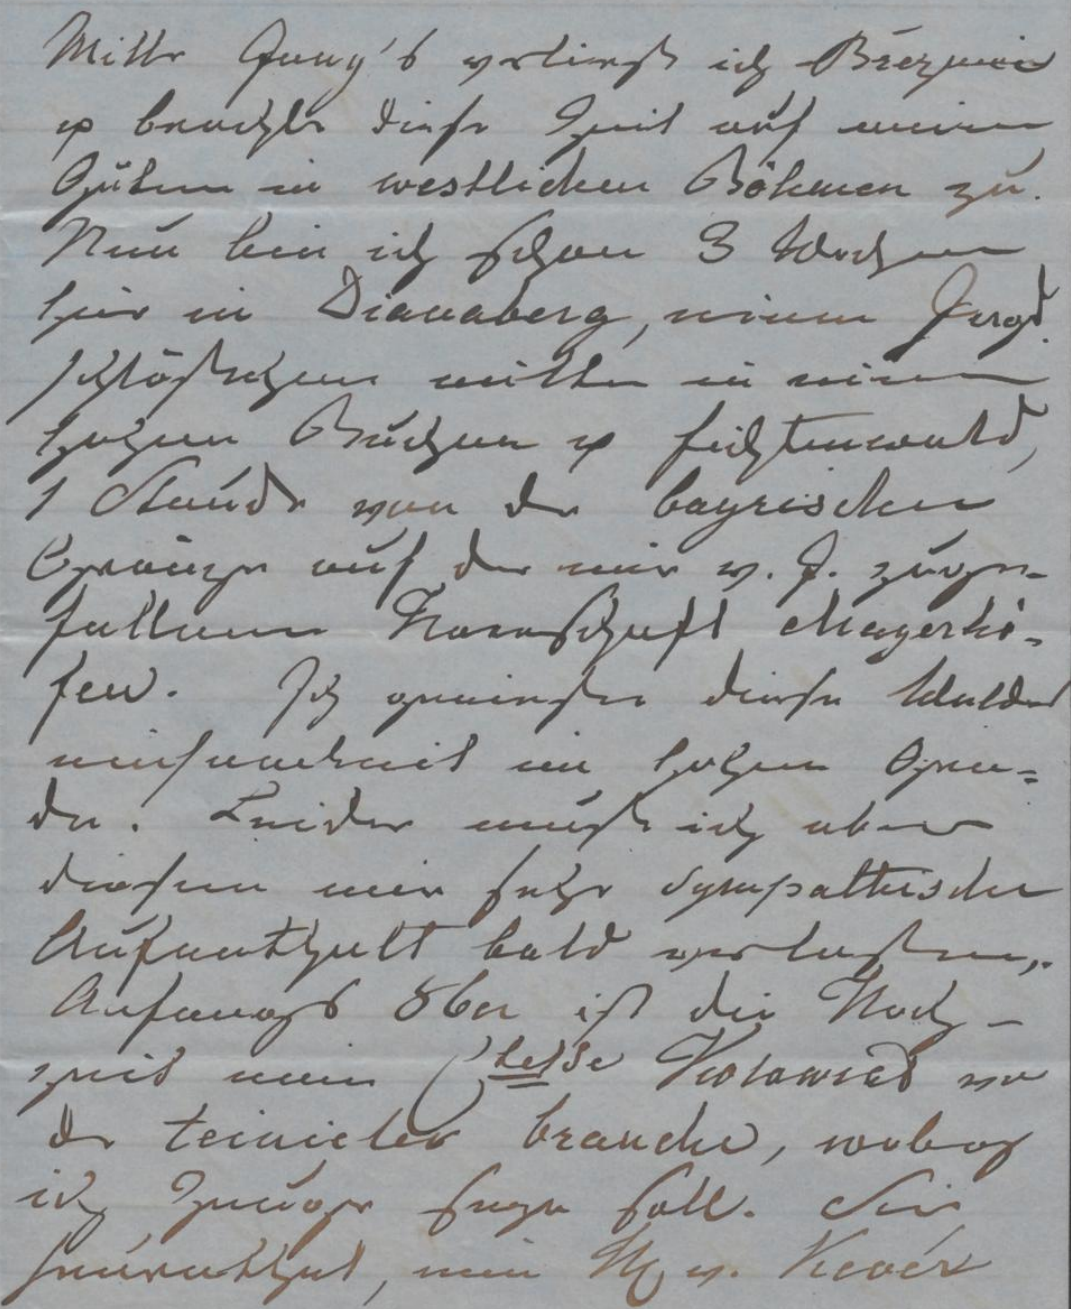 Mitte Juny's verließ ich Březnic
u brachte diese Zeit auf meinen
Gütern im westlichen Böhmen zu.
Nun bin ich schon 3 Wochen
hier in Dianaberg, einem Jagd-
schlößchen mitten in einem
hohen Buchen u Fichtenwald,
1 Stunde von der bayrischen
Gränze auf der mir v. J. zuge-
fallenen Herrschaft Mayerhö-
fen. Ich genieße diese Waldes
einsamkeit in hohem Gra-
de. Leider muß ich aber
diesen mir sehr sympathischen
Aufenthalt bald verlassen,.
Anfangs 8ber ist die Hoch-
zeit einer Ctesse Kolowrat von
der teinicler branche, wobey
ich Zeuge seyn soll. Sie
heurathet, einen H v.